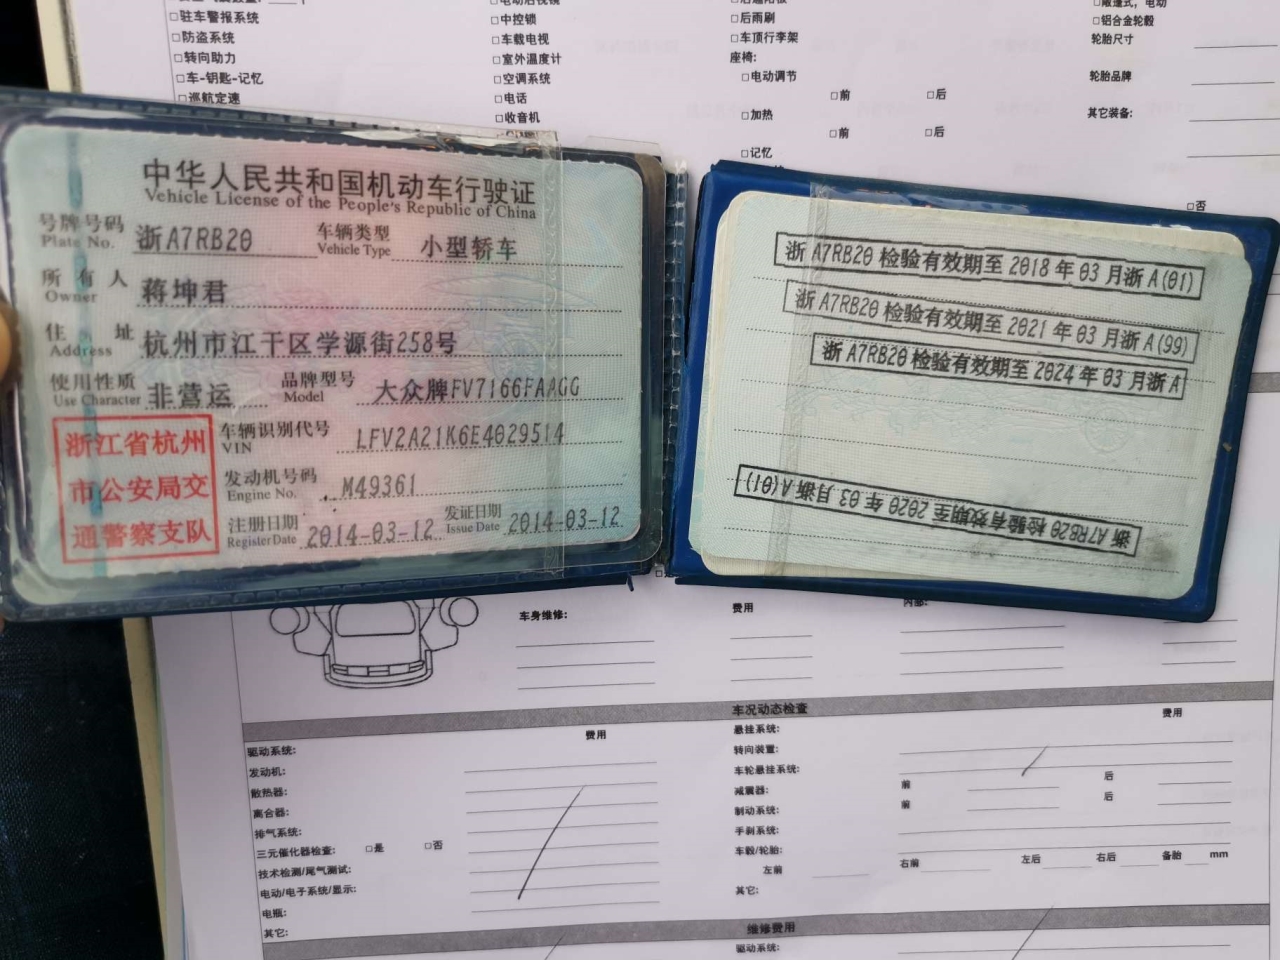 □驻车警报系统
□防盗系统
□转向助力
□车-钥匙-记忆
□巡航定速
□中控锁
□车载电视
□室外温度计
□空调系统
□电话
□收音机
□后雨刷
□车顶行李架
座椅:
□电动调节
□前 □后
□加热
□前 □后
□记忆
□铝合金轮毂
轮胎尺寸
轮胎品牌
其它装备:
□否
中华人民共和国机动车行驶证
Vehicle License of the People's Republic of China
号牌号码 浙A7RB20 车辆类型 小型轿车
Plate No. Vehicle Type
所有人 蒋坤君
Owner
住址 杭州市江干区学源街258号
Address
使用性质 非营运 品牌型号 大众牌FV7166FAAGG
Use Character Model
浙江省杭州
市公安局交
通警察支队
车辆识别代号 LFV2A21K6E4029514
VIN
发动机号码 M49361
Engine No.
注册日期 2014-03-12 发证日期 2014-03-12
Register Date Issue Date
浙A7RB20 检验有效期至 2018 年 03 月浙A(01)
浙A7RB20 检验有效期至 2021 年 03 月浙A(99)
浙A7RB20 检验有效期至 2024 年 03 月浙A
浙A7RB20 检验有效期至 2020 年 03 月浙A(01)
车身维修: 费用 内部:
车况动态检查
费用 费用
驱动系统:
发动机:
散热器:
离合器:
排气系统:
三元催化器检查: □是 □否
技术检测/尾气测试:
电动/电子系统/显示:
电瓶:
其它:
悬挂系统:
转向装置:
车轮悬挂系统:
减震器: 前 后
制动系统: 前 后
手刹系统:
车毂/轮胎:
左前 右前 左后 右后 备胎 mm
其它:
维修费用
驱动系统: